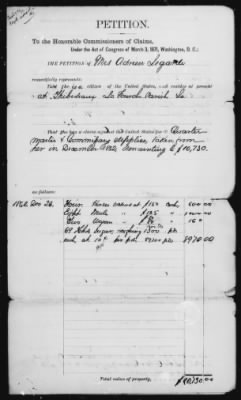 PETITION.
To the Honorable Commissioners of Claims,
Under the Act of Congress of March 3, 1871, Washington, D. C.:
THE PETITION OF Mrs Adrien Legarde
respectfully represents:
That she is a citizen of the United States, and resides at present
at Thibodaux La Fourche Parish La
That she has a claim against the United States for Quarter
master & Commissary supplies, taken from
her in December 1862, amounting to $10,730.
as follows:
1862 Dec 26. Four Horses valued at $150 each, 600 00
Eight Mules " $125 " 1000 00
Two Wagons " $80 " 160
each at 10c per pd. 8970 00
Total value of property, $10730.00